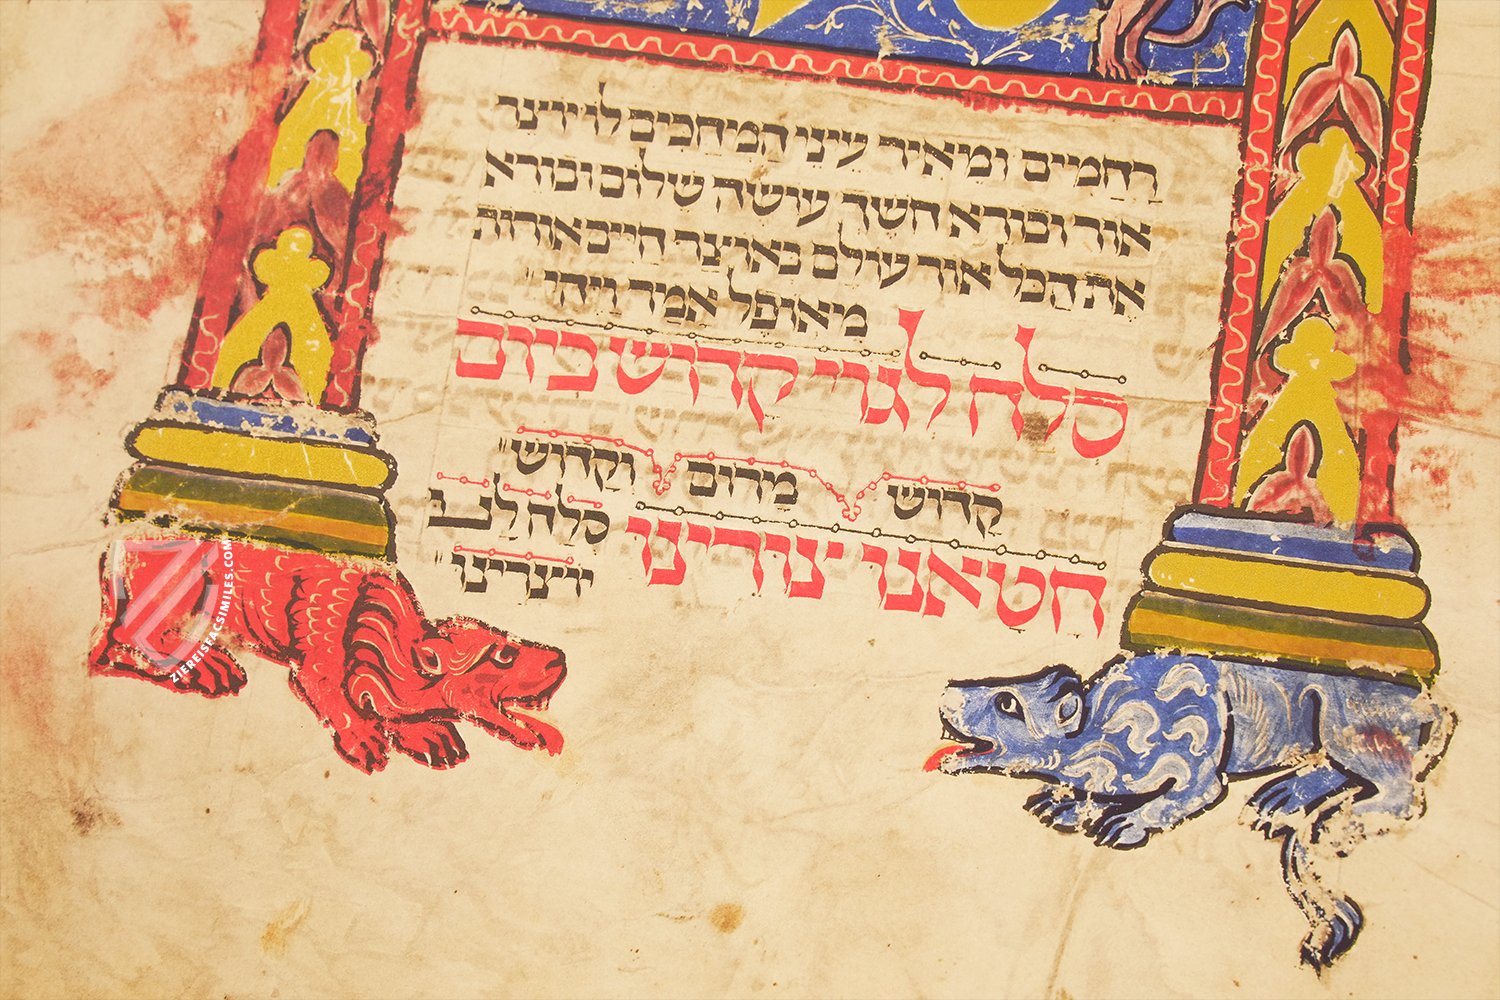 רַחמים ומאיר עיני המחכים לו יוצר
אור ובורא חשך עושה שלום ובורא
את הכל אור עולם באוצר חיים אורות
מאופל אמר ויהי
סלח לגוי קדוש ביום
קדוש מרום וקדוש
חטאנו צורינו סלח לנו
יוצרינו
ZIEREISFACSIMILES.COM